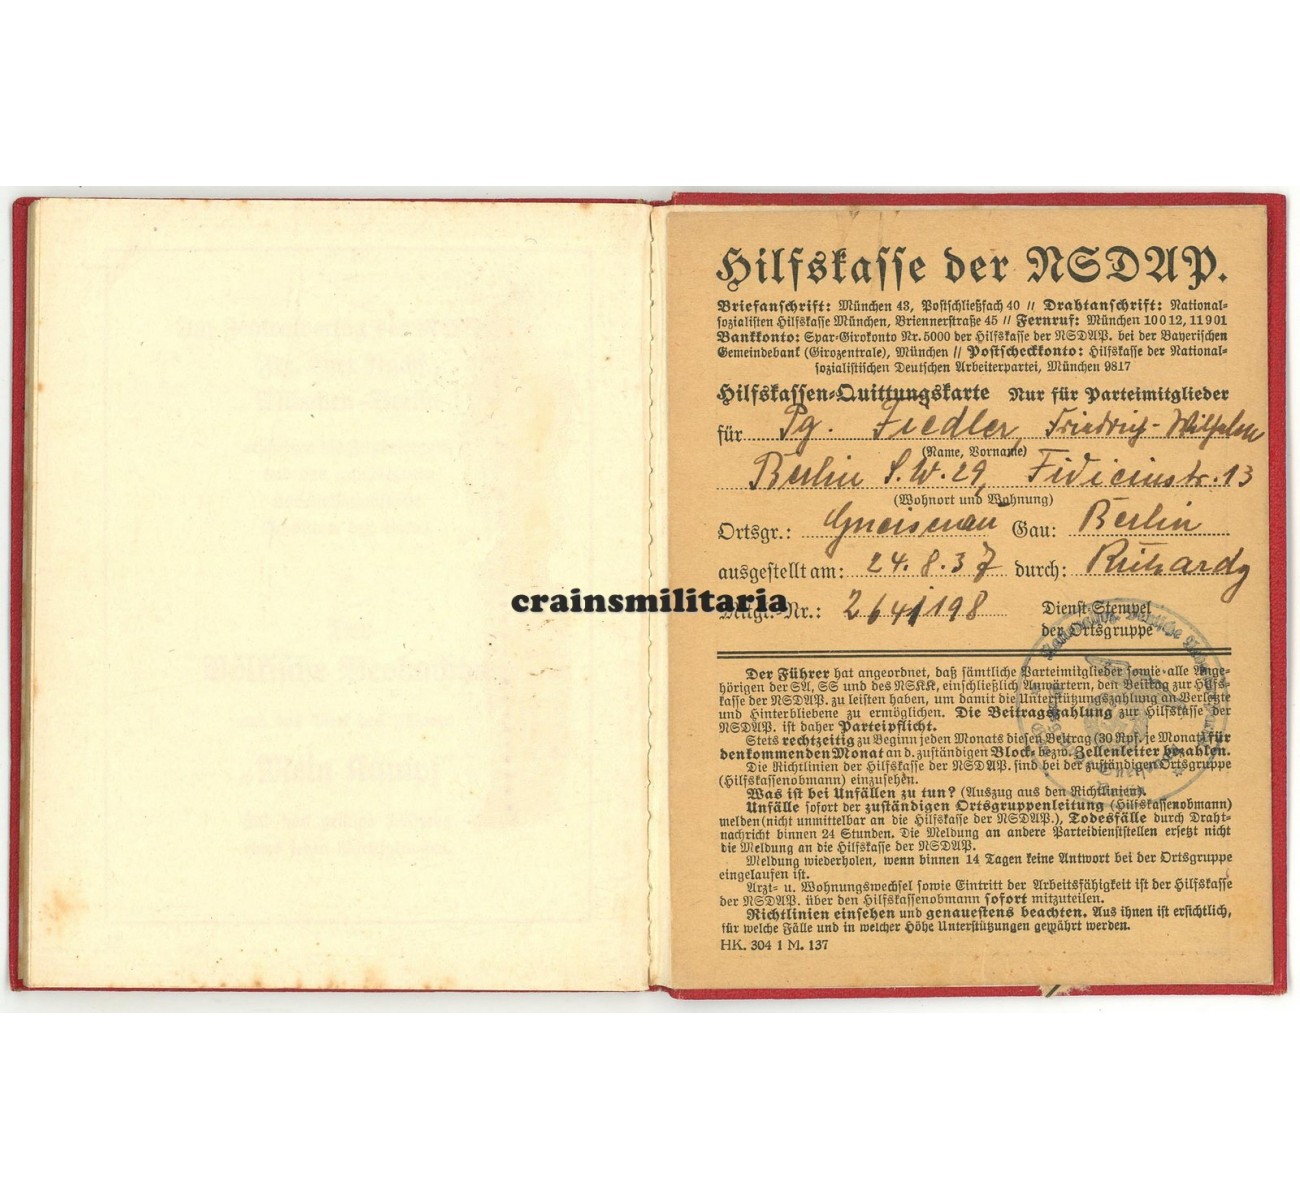 Hilfskasse der NSDAP.
Briefanschrift: München 43, Postschließfach 40 // Drahtanschrift: National-
sozialisten Hilfskasse München, Briennerstraße 45 // Fernruf: München 10012, 11901
Bankkonto: Spar-Girokonto Nr. 5000 der Hilfskasse der NSDAP. bei der Bayerischen
Gemeindebank (Girozentrale), München // Postscheckkonto: Hilfskasse der National-
sozialistischen Deutschen Arbeiterpartei, München 9817
Hilfskassen-Quittungskarte Nur für Parteimitglieder
für Pg. Fiedler, Friedrich-Wilhelm
(Name, Vorname)
Berlin S.W. 29, Fidicinstr. 13
(Wohnort und Wohnung)
Ortsgr.: Gneisenau Gau: Berlin
ausgestellt am: 24.8.37 durch:
crainsmilitaria
Mitgl.-Nr.: 2641198 Dienst-Stempel
der Ortsgruppe
Der Führer hat angeordnet, daß sämtliche Parteimitglieder sowie alle Ange-
hörigen der SA, SS und des NSKK, einschließlich Anwärtern, den Beitrag zur Hilfs-
kasse der NSDAP. zu leisten haben, um damit die Unterstützungszahlung an Verletzte
und Hinterbliebene zu ermöglichen. Die Beitragszahlung zur Hilfskasse der
NSDAP. ist daher Parteipflicht.
Stets rechtzeitig zu Beginn jeden Monats diesen Beitrag (30 Rpf. je Monat) für
den kommenden Monat an d. zuständigen Block- bezw. Zellenleiter bezahlen.
Die Richtlinien der Hilfskasse der NSDAP. sind bei der zuständigen Ortsgruppe
(Hilfskassenobmann) einzusehen.
Was ist bei Unfällen zu tun? (Auszug aus den Richtlinien).
Unfälle sofort der zuständigen Ortsgruppenleitung (Hilfskassenobmann)
melden (nicht unmittelbar an die Hilfskasse der NSDAP.), Todesfälle durch Draht-
nachricht binnen 24 Stunden. Die Meldung an andere Parteidienststellen ersetzt nicht
die Meldung an die Hilfskasse der NSDAP.
Meldung wiederholen, wenn binnen 14 Tagen keine Antwort bei der Ortsgruppe
eingelaufen ist.
Arzt- u. Wohnungswechsel sowie Eintritt der Arbeitsfähigkeit ist der Hilfskasse
der NSDAP. über den Hilfskassenobmann sofort mitzuteilen.
Richtlinien einsehen und genauestens beachten. Aus ihnen ist ersichtlich,
für welche Fälle und in welcher Höhe Unterstützungen gewährt werden.
HK. 304 1 M. 137